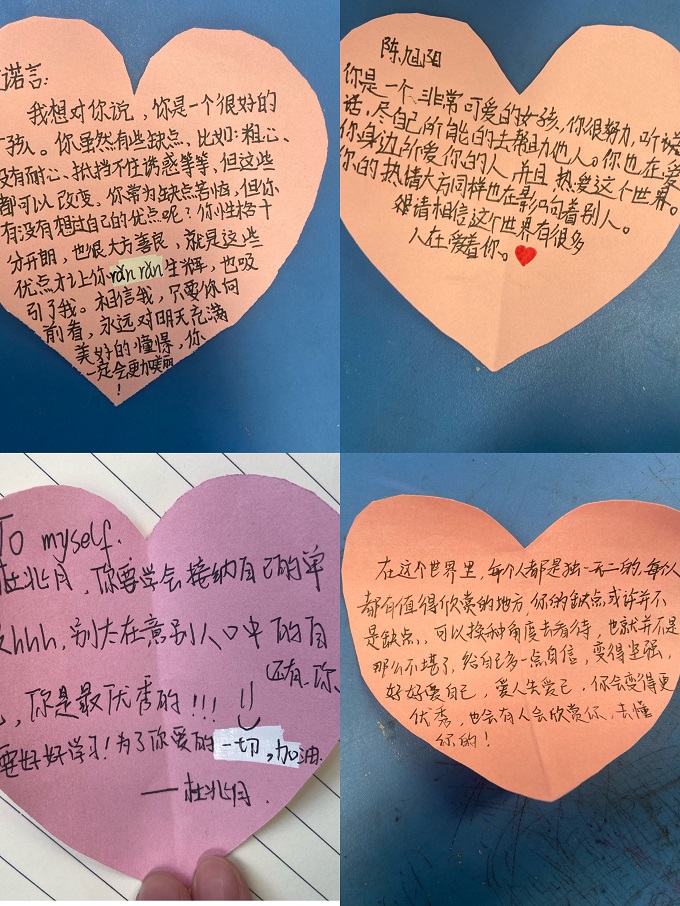 诺言:
我想对你说，你是一个很好的
孩。你虽然有些缺点，比如:粗心、
没有耐心、抵挡不住诱惑等等，但这些
都可以改变。你常为缺点苦恼，但你
有没有想过自己的优点呢？你性格十
分开朗，也很大方善良，就是这些
优点才让你rǎn rǎn生辉，也吸
引了我。相信我，只要你向
前看，永远对明天充满
美好的憧憬，你
一定会更加美丽
！
陈旭阳
你是一个非常可爱的女孩，你很努力，听说
话，尽自己所能的去帮助他人。你也在爱
你身边所爱你的人 并且 热爱这个世界。
你的热情大方同样也在影响着别人。
请相信这个世界有很多
人在爱着你。
To myself.
杜兆月，你要学会接纳自己的单
hhh，别太在意别人口中的自
还有、你、
，你是最优秀的!!!
要好好学习！为了你爱的一切，加油.
——杜兆月.
在这个世界里，每个人都是独一无二的，每个人
都有值得欣赏的地方，你的缺点或许并不
是缺点，可以换种角度去看待，也就并不是
那么不堪了，给自己多一点自信，变得坚强，
好好爱自己，爱人先爱己，你会变得更
优秀，也会有人会欣赏你，去懂
你的！